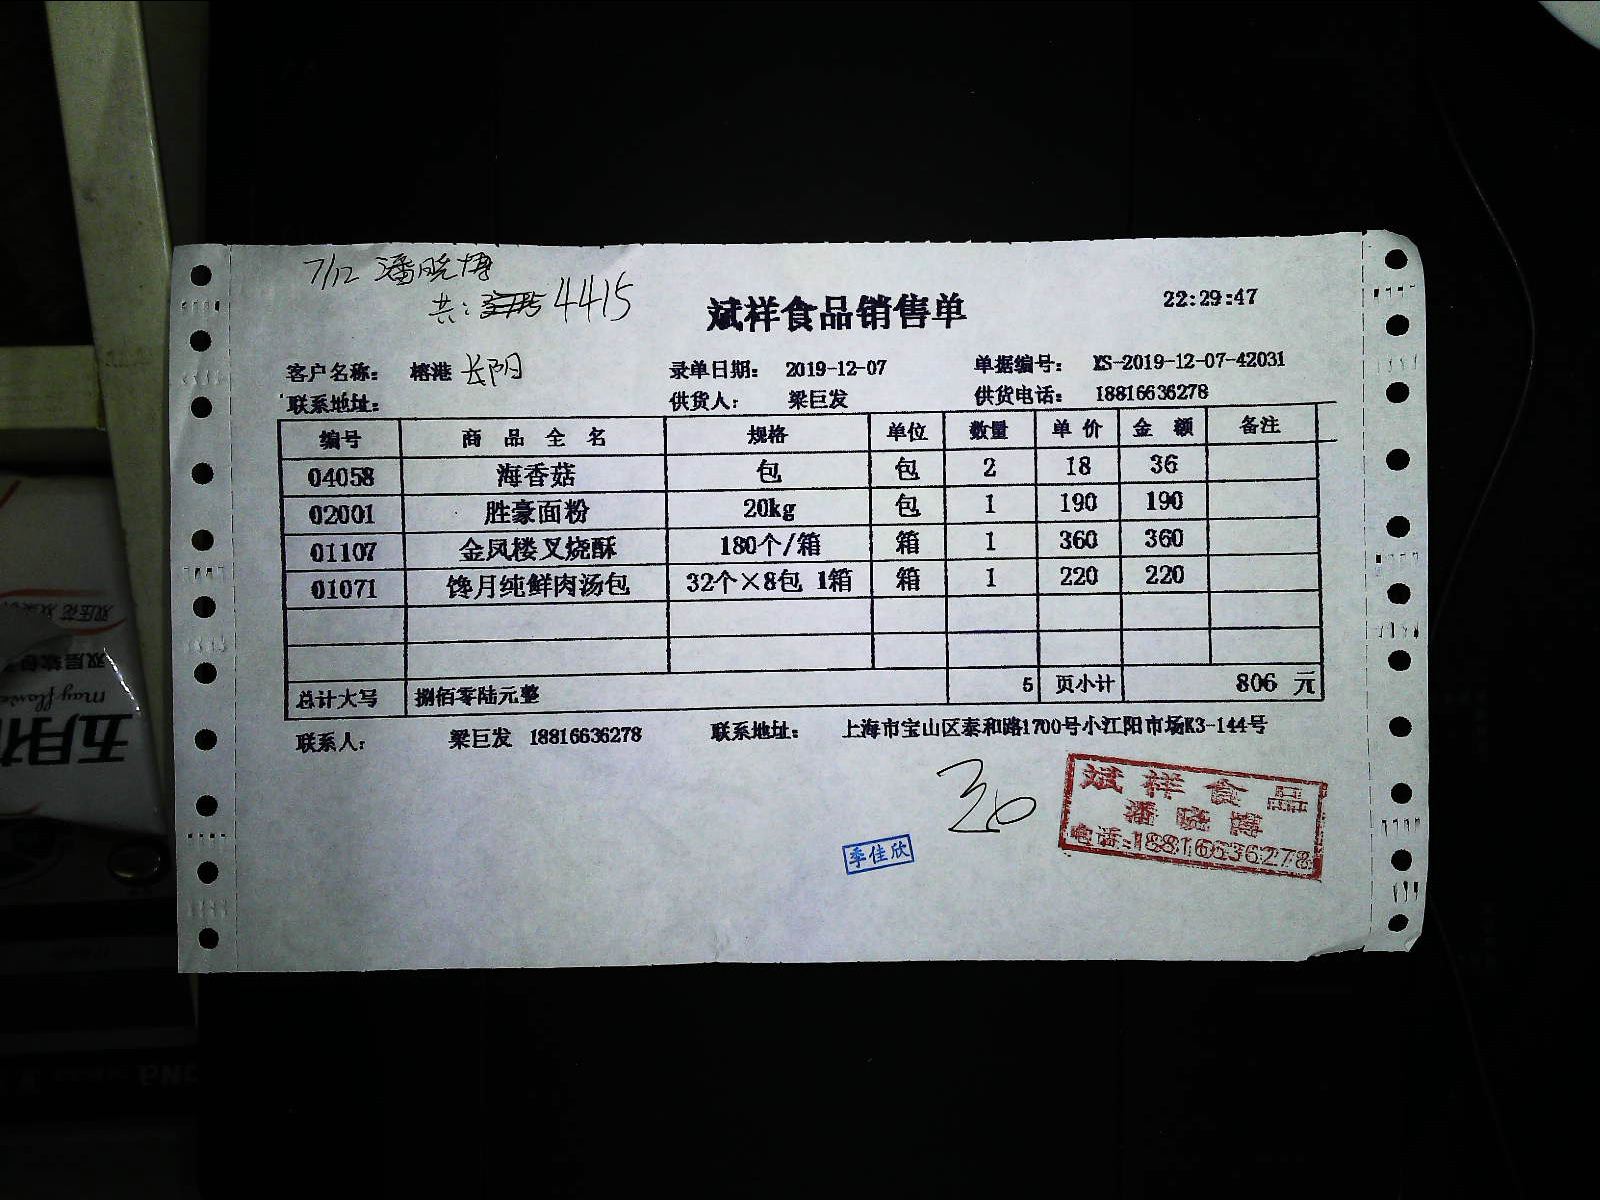 7/12 潘晓博
共: 4415
斌祥食品销售单
22:29:47
客户名称: 榕港 长阳 录单日期: 2019-12-07 单据编号: XS-2019-12-07-42031
联系地址: 供货人: 梁巨发 供货电话: 18816636278
编号 商品全名 规格 单位 数量 单价 金额 备注
04058 海香菇 包 包 2 18 36
02001 胜豪面粉 20kg 包 1 190 190
01107 金凤楼叉烧酥 180个/箱 箱 1 360 360
01071 馋月纯鲜肉汤包 32个×8包 1箱 箱 1 220 220
总计大写 捌佰零陆元整 5 页小计 806 元
联系人: 梁巨发 18816636278 联系地址: 上海市宝山区泰和路1700号小江阳市场K3-144号
斌祥食品
潘晓博
电话:18816636278
季佳欣
双层软
may flower
五月花